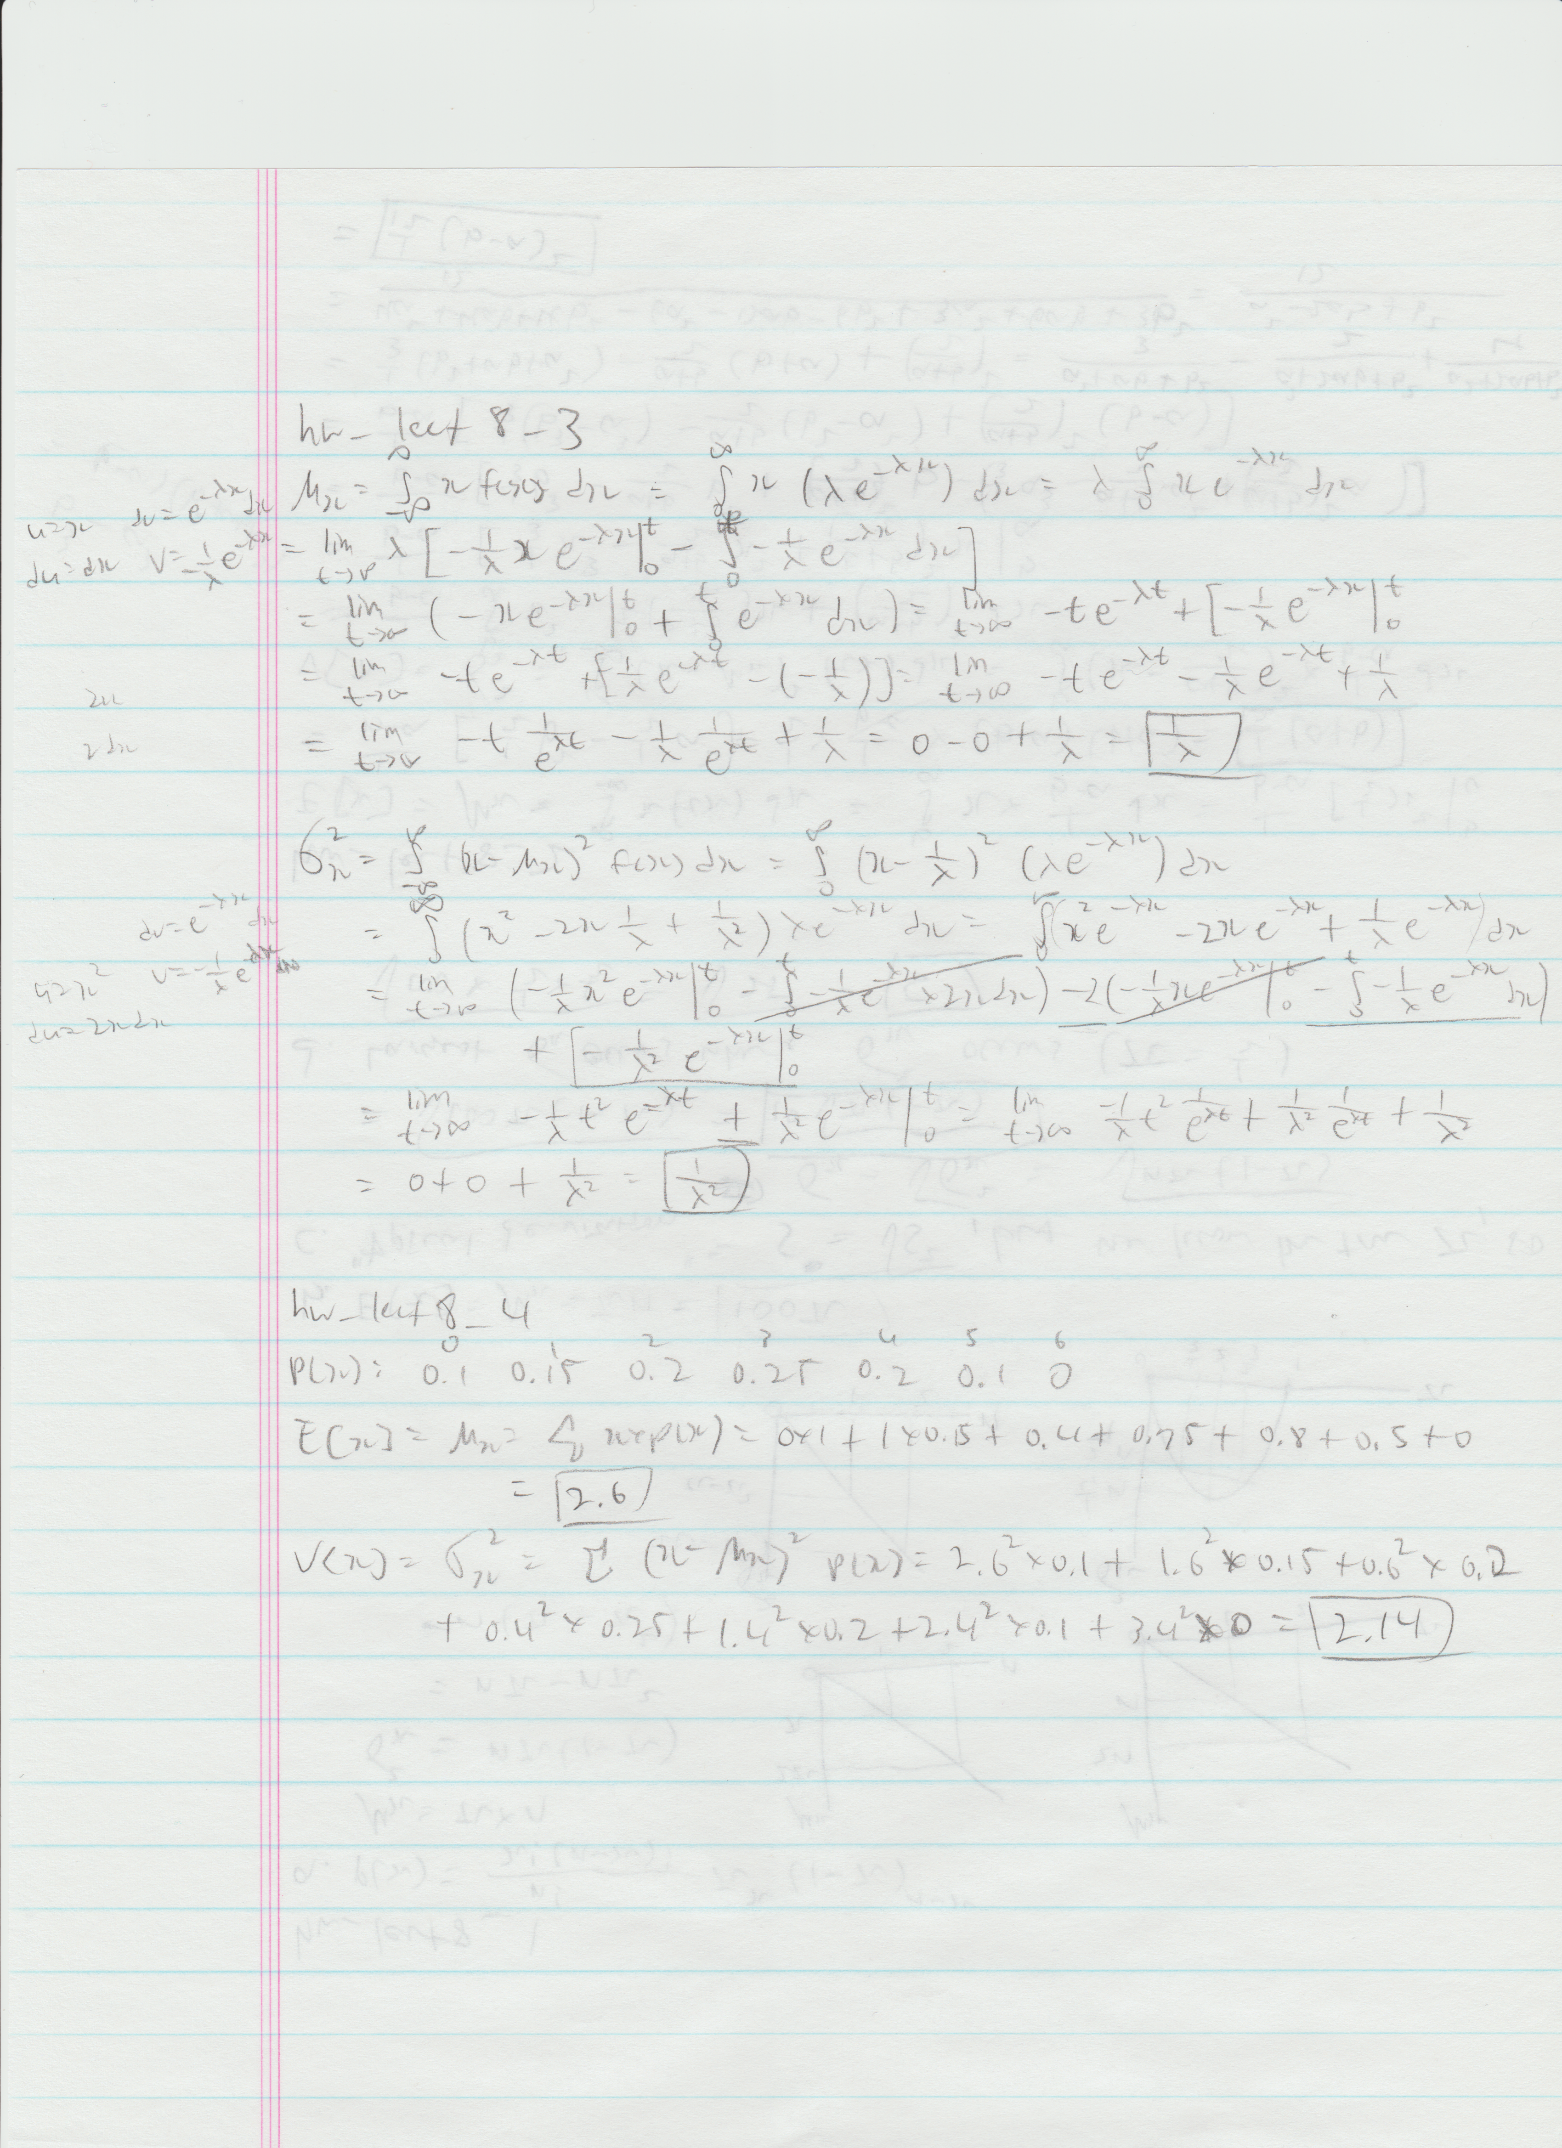 hw_lect 8-3
μx = ∫_{-∞}^{∞} x f(x) dx = ∫_0^∞ x (λe^{-λx}) dx = λ ∫_0^∞ x e^{-λx} dx
u=x dv=e^{-λx}dx
du=dx v=-1/λ e^{-λx}
= lim_{t→∞} λ [-1/λ x e^{-λx}|_0^t - ∫_0^t -1/λ e^{-λx} dx]
= lim_{t→∞} (-x e^{-λx}|_0^t + ∫_0^t e^{-λx} dx) = lim_{t→∞} -t e^{-λt} + [-1/λ e^{-λx}|_0^t
= lim_{t→∞} -t e^{-λt} + [-1/λ e^{-λt} - (-1/λ)] = lim_{t→∞} -t e^{-λt} - 1/λ e^{-λt} + 1/λ
2x
2dx
= lim_{t→∞} -t 1/e^{λt} - 1/λ 1/e^{λt} + 1/λ = 0 - 0 + 1/λ = 1/λ
σx² = ∫_{-∞}^{∞} (x-μx)² f(x) dx = ∫_0^∞ (x - 1/λ)² (λe^{-λx}) dx
= ∫_0^∞ (x² - 2x 1/λ + 1/λ²) λe^{-λx} dx = ∫_0^∞ (λx² e^{-λx} - 2x e^{-λx} + 1/λ e^{-λx}) dx
dv=e^{-λx} dx
u=x² v=-1/λ e^{-λx}
du=2x dx
= lim_{t→∞} (-1/λ x² e^{-λx}|_0^t - ∫_0^t -1/λ e^{-λx} × 2x dx) - 2(-1/λ x e^{-λx}|_0^t - ∫_0^t -1/λ e^{-λx} dx)
+ [-1/λ² e^{-λx}|_0^t
= lim_{t→∞} -1/λ t² e^{-λt} + 1/λ² e^{-λx}|_0^t = lim_{t→∞} -1/λ t² 1/e^{λt} + 1/λ² 1/e^{λt} + 1/λ²
= 0 + 0 + 1/λ² = 1/λ²
hw_lect 8_4
0 1 2 3 4 5 6
P(x): 0.1 0.15 0.2 0.25 0.2 0.1 0
E[x] = μx = Σ x×p(x) = 0×1 + 1×0.15 + 0.4 + 0.75 + 0.8 + 0.5 + 0
= 2.6
V(x) = σx² = Σ (x-μx)² p(x) = 2.6² × 0.1 + 1.6² × 0.15 + 0.6² × 0.2
+ 0.4² × 0.25 + 1.4² × 0.2 + 2.4² × 0.1 + 3.4² × 0 = 2.14